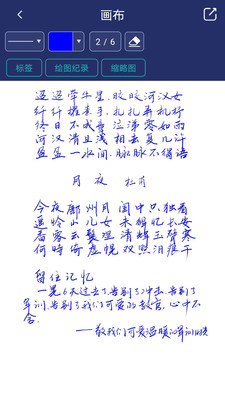 画布
2 / 6
标签
绘图纪录
缩略图
迢迢牵牛星,皎皎河汉女
纤纤擢素手,扎扎弄机杼
终日不成章 泣涕零如雨
河汉清且浅 相去复几许
盈盈一水间,脉脉不得语
月夜 杜甫
今夜鄜州月 闺中只独看
遥怜小儿女 未解忆长安
香雾云鬟湿 清辉玉臂寒
何时倚虚幌 双照泪痕干
留住记忆
一晃6天过去了,告别了
军训,告别了我们可爱的教官,心中不
舍.
——致我们可爱温暖的军训